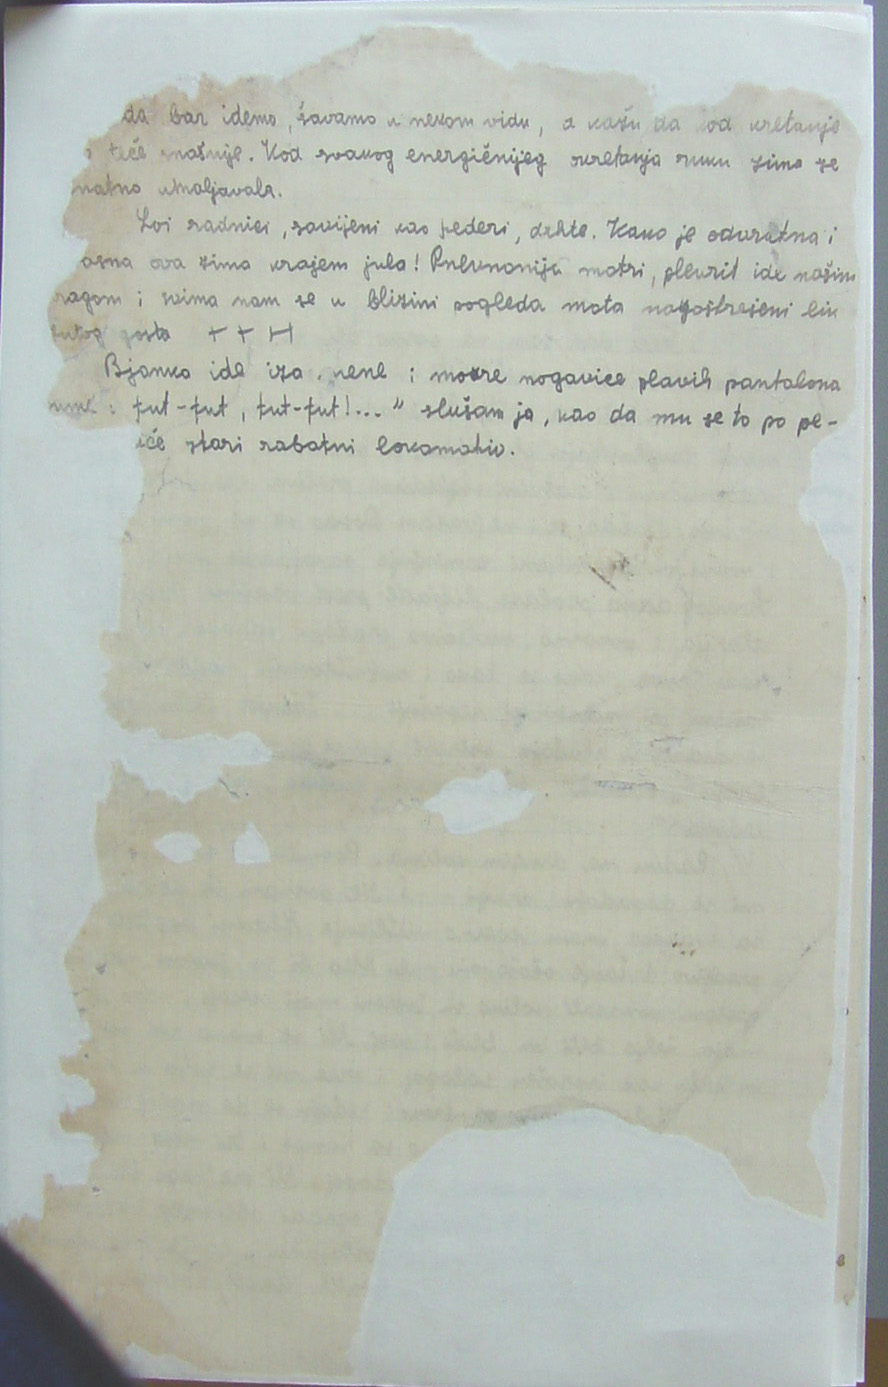 da bar idemo, šavamo u nekom vidu, a kažu da kod kretanja
teče snažnije. Kod svakog energičnijeg okretanja ruku zima se
natno umaljavala.
Svi radnici, savijeni kao pederi, drhte. Kako je odvratna i
asna ova zima krajem jula! Pnevmonija motri, pleurit ide našim
ragom i svima nam se u blizini pogleda mota
gosta + + H
Bjanko ide iza mene i mokre nogavice plavih pantalona
fut-fut, fut-fut!..." slušam ja, kao da mu se to po pe-
stari rabatni lokomotiv.